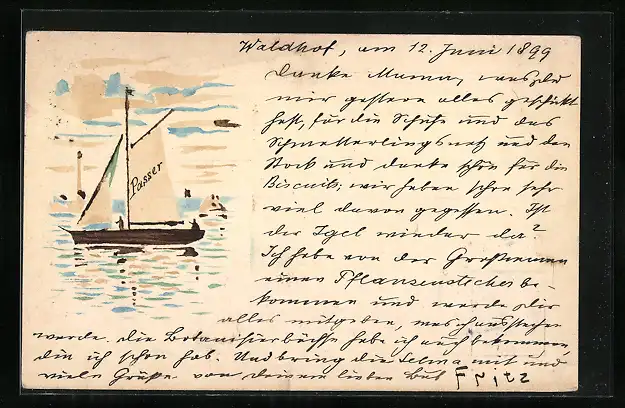 Waldhof, am 12. Juni 1899
Danke Mama, was du
mir gestern alles geschickt
hast, für die Schuhe und das
Schmetterlingsnetz und den
Stock und danke schön für die
Biscuits; wir haben schon sehr
viel davon gegessen. Ist
der Igel wieder da?
Ich habe von der Großmama
einen Pflanzenstecher be-
kommen und werde dir
alles mitgeben, was ich ausstechen
werde. Die Botanisierbüchse habe ich auch bekommen,
die ich schon hab. Und bring die Selma mit und
viele Grüße von deinem lieben Bub Fritz
Passer